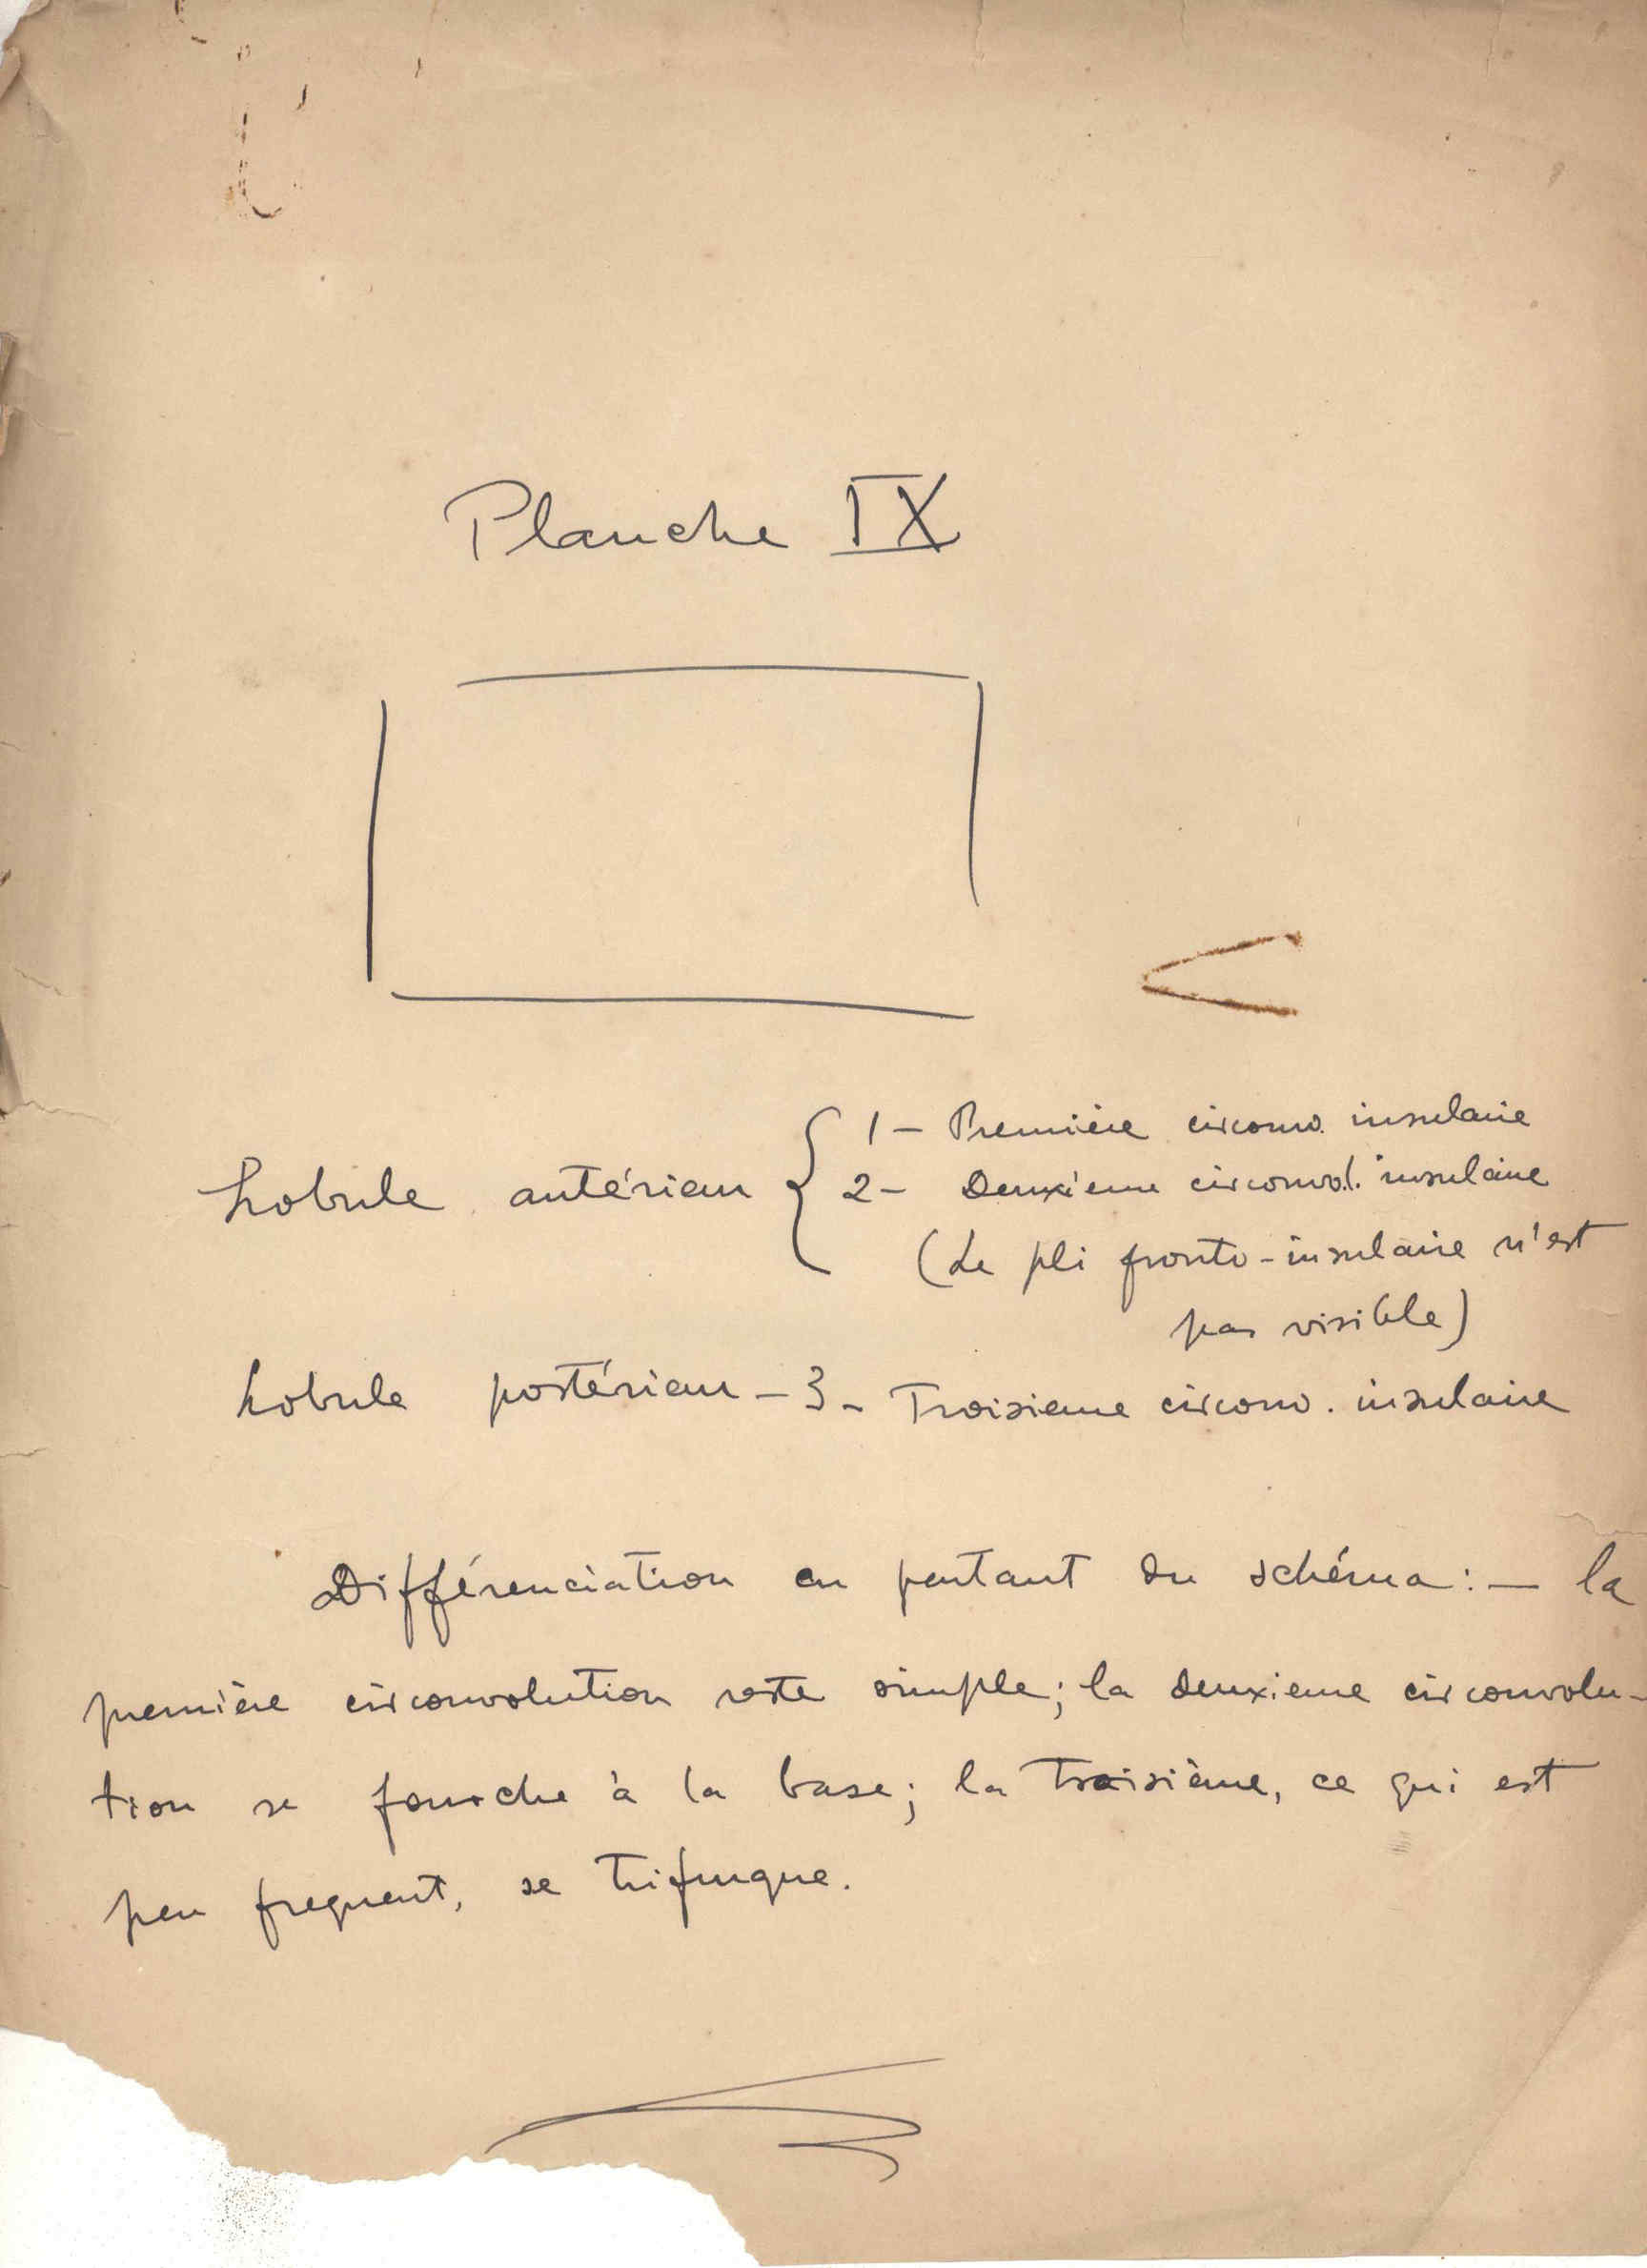 Planche IX
1 - Première circonv. insulaire
Lobule antérieur 2 - Deuxième circonvol. insulaire
(Le pli fronto-insulaire n'est
pas visible)
Lobule postérieur - 3 - Troisieme circonv. insulaire
Différenciation en partant du schéma : — la
première circonvolution reste simple; la deuxieme circonvolu-
tion se fourche à la base; la troisième, ce qui est
peu frequent, se trifurque.